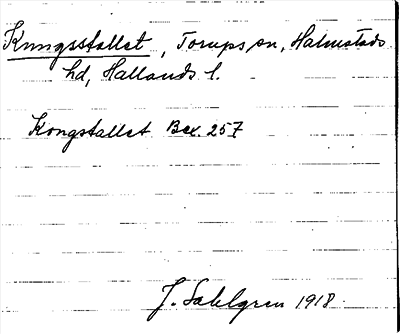 Kungsstallet, Torups sn, Halmstads
hd, Hallands l.
Kongstallet Bex. 257
J. Sahlgren 1918